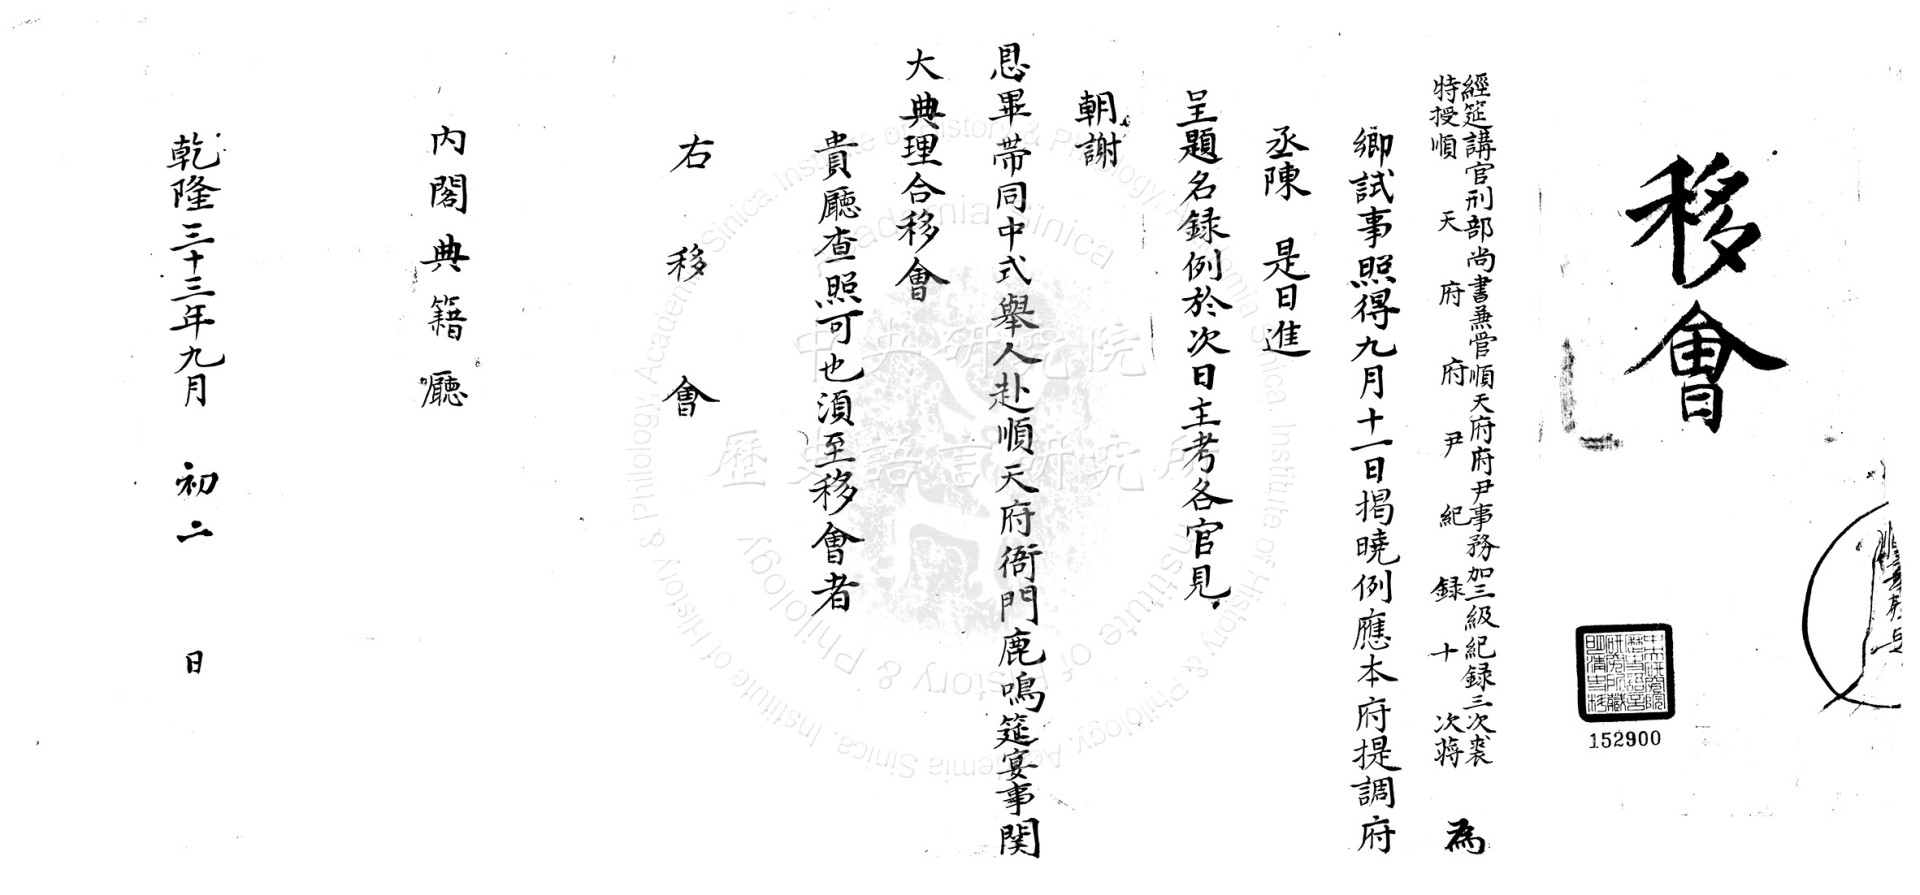 移會
經筵講官刑部尚書兼管順天府府尹事務加三級紀録三次裘
特授順天府府尹紀録十次蔣
為
鄉試事照得九月十一日揭曉例應本府提調府
丞陳 是日進
呈題名録例於次日主考各官見
朝謝
恩畢帶同中式舉人赴順天府衙門鹿鳴筵宴事関
大典理合移會
貴廳查照可也湏至移會者
右移會
內閣典籍廳
乾隆三十三年九月 初二 日
152900
中央研究院
歷史語言研究所
Academia Sinica Institute of History & Philology